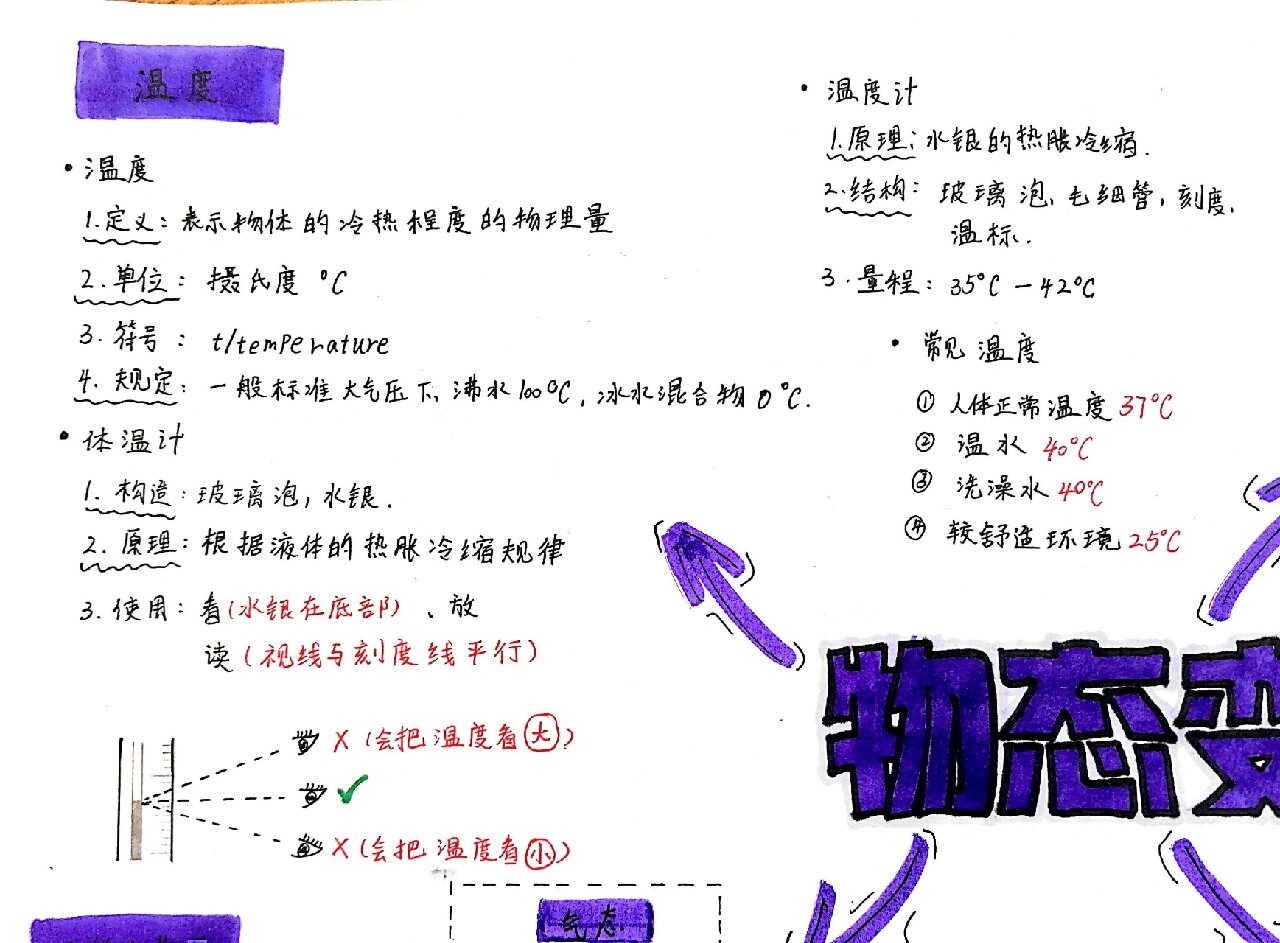 温度
• 温度
1.定义: 表示物体的冷热程度的物理量
2.单位: 摄氏度 °C
3.符号: t/temperature
4.规定: 一般标准大气压下,沸水100°C,冰水混合物0°C.
• 体温计
1.构造: 玻璃泡,水银.
2.原理: 根据液体的热胀冷缩规律
3.使用: 看(水银在底部)、放
读(视线与刻度线平行)
X (会把温度看大)
✓
X (会把温度看小)
• 温度计
1.原理: 水银的热胀冷缩.
2.结构: 玻璃泡,毛细管,刻度,
温标.
3.量程: 35°C-42°C
• 常见温度
① 人体正常温度 37°C
② 温水 40°C
③ 洗澡水 40°C
④ 较舒适环境 25°C
物态变
气态